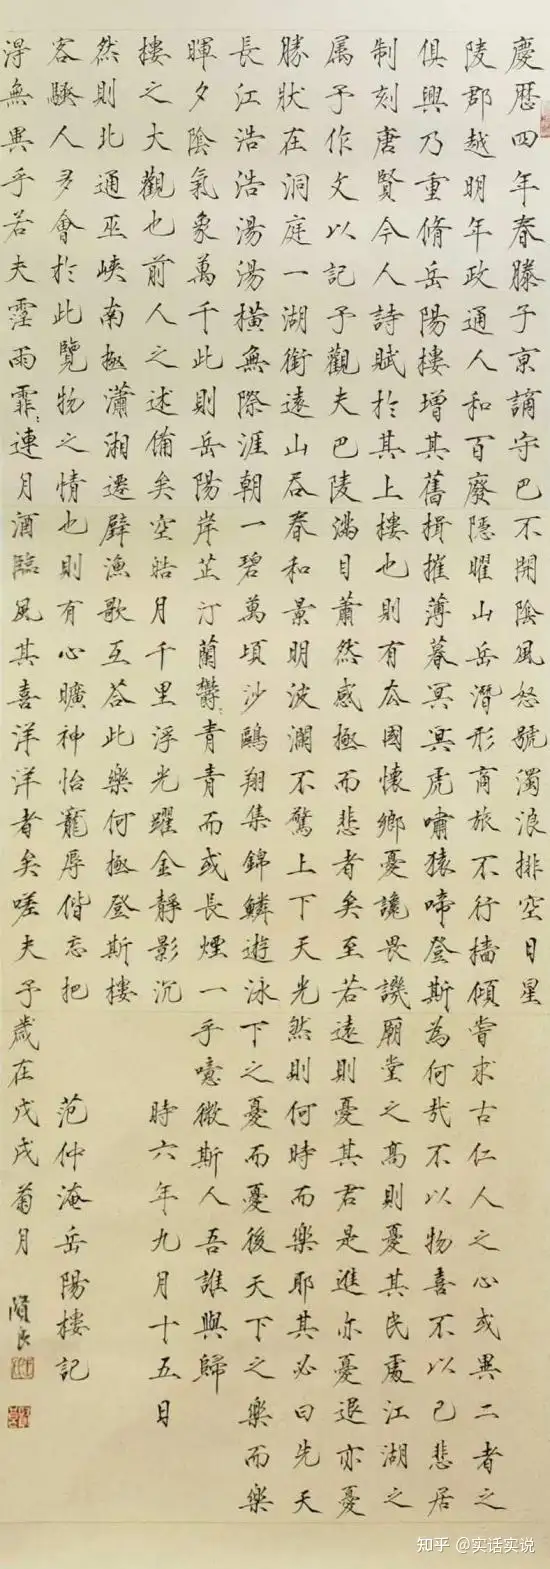 慶曆四年春滕子京謫守巴
陵郡越明年政通人和百廢
俱興乃重脩岳陽樓增其舊
制刻唐賢今人詩賦於其上
属予作文以記予觀夫巴陵
勝狀在洞庭一湖銜遠山吞
長江浩浩湯湯橫無際涯朝
暉夕陰氣象萬千此則岳陽
樓之大觀也前人之述備矣
然則北通巫峽南極瀟湘遷
客騷人多會於此覽物之情
淂無異乎若夫霪雨霏〻連月
不開陰風怒號濁浪排空日星
隱曜山岳潛形商旅不行檣傾
楫摧薄暮冥冥虎嘯猿啼登斯
樓也則有去國懷鄉憂讒畏譏
滿目蕭然感極而悲者矣至若
春和景明波瀾不驚上下天光
一碧萬頃沙鷗翔集錦鱗遊泳
岸芷汀蘭鬱〻青青而或長煙一
空皓月千里浮光躍金靜影沉
璧漁歌互答此樂何極登斯樓
也則有心曠神怡寵辱偕忘把
酒臨風其喜洋洋者矣嗟夫予
嘗求古仁人之心或異二者之
為何哉不以物喜不以己悲居
廟堂之高則憂其民處江湖之
遠則憂其君是進亦憂退亦憂
然則何時而樂耶其必曰先天
下之憂而憂後天下之樂而樂
乎噫微斯人吾誰與歸
時六年九月十五日
范仲淹岳陽樓記
歲在戊戌菊月
知乎 @实话实说